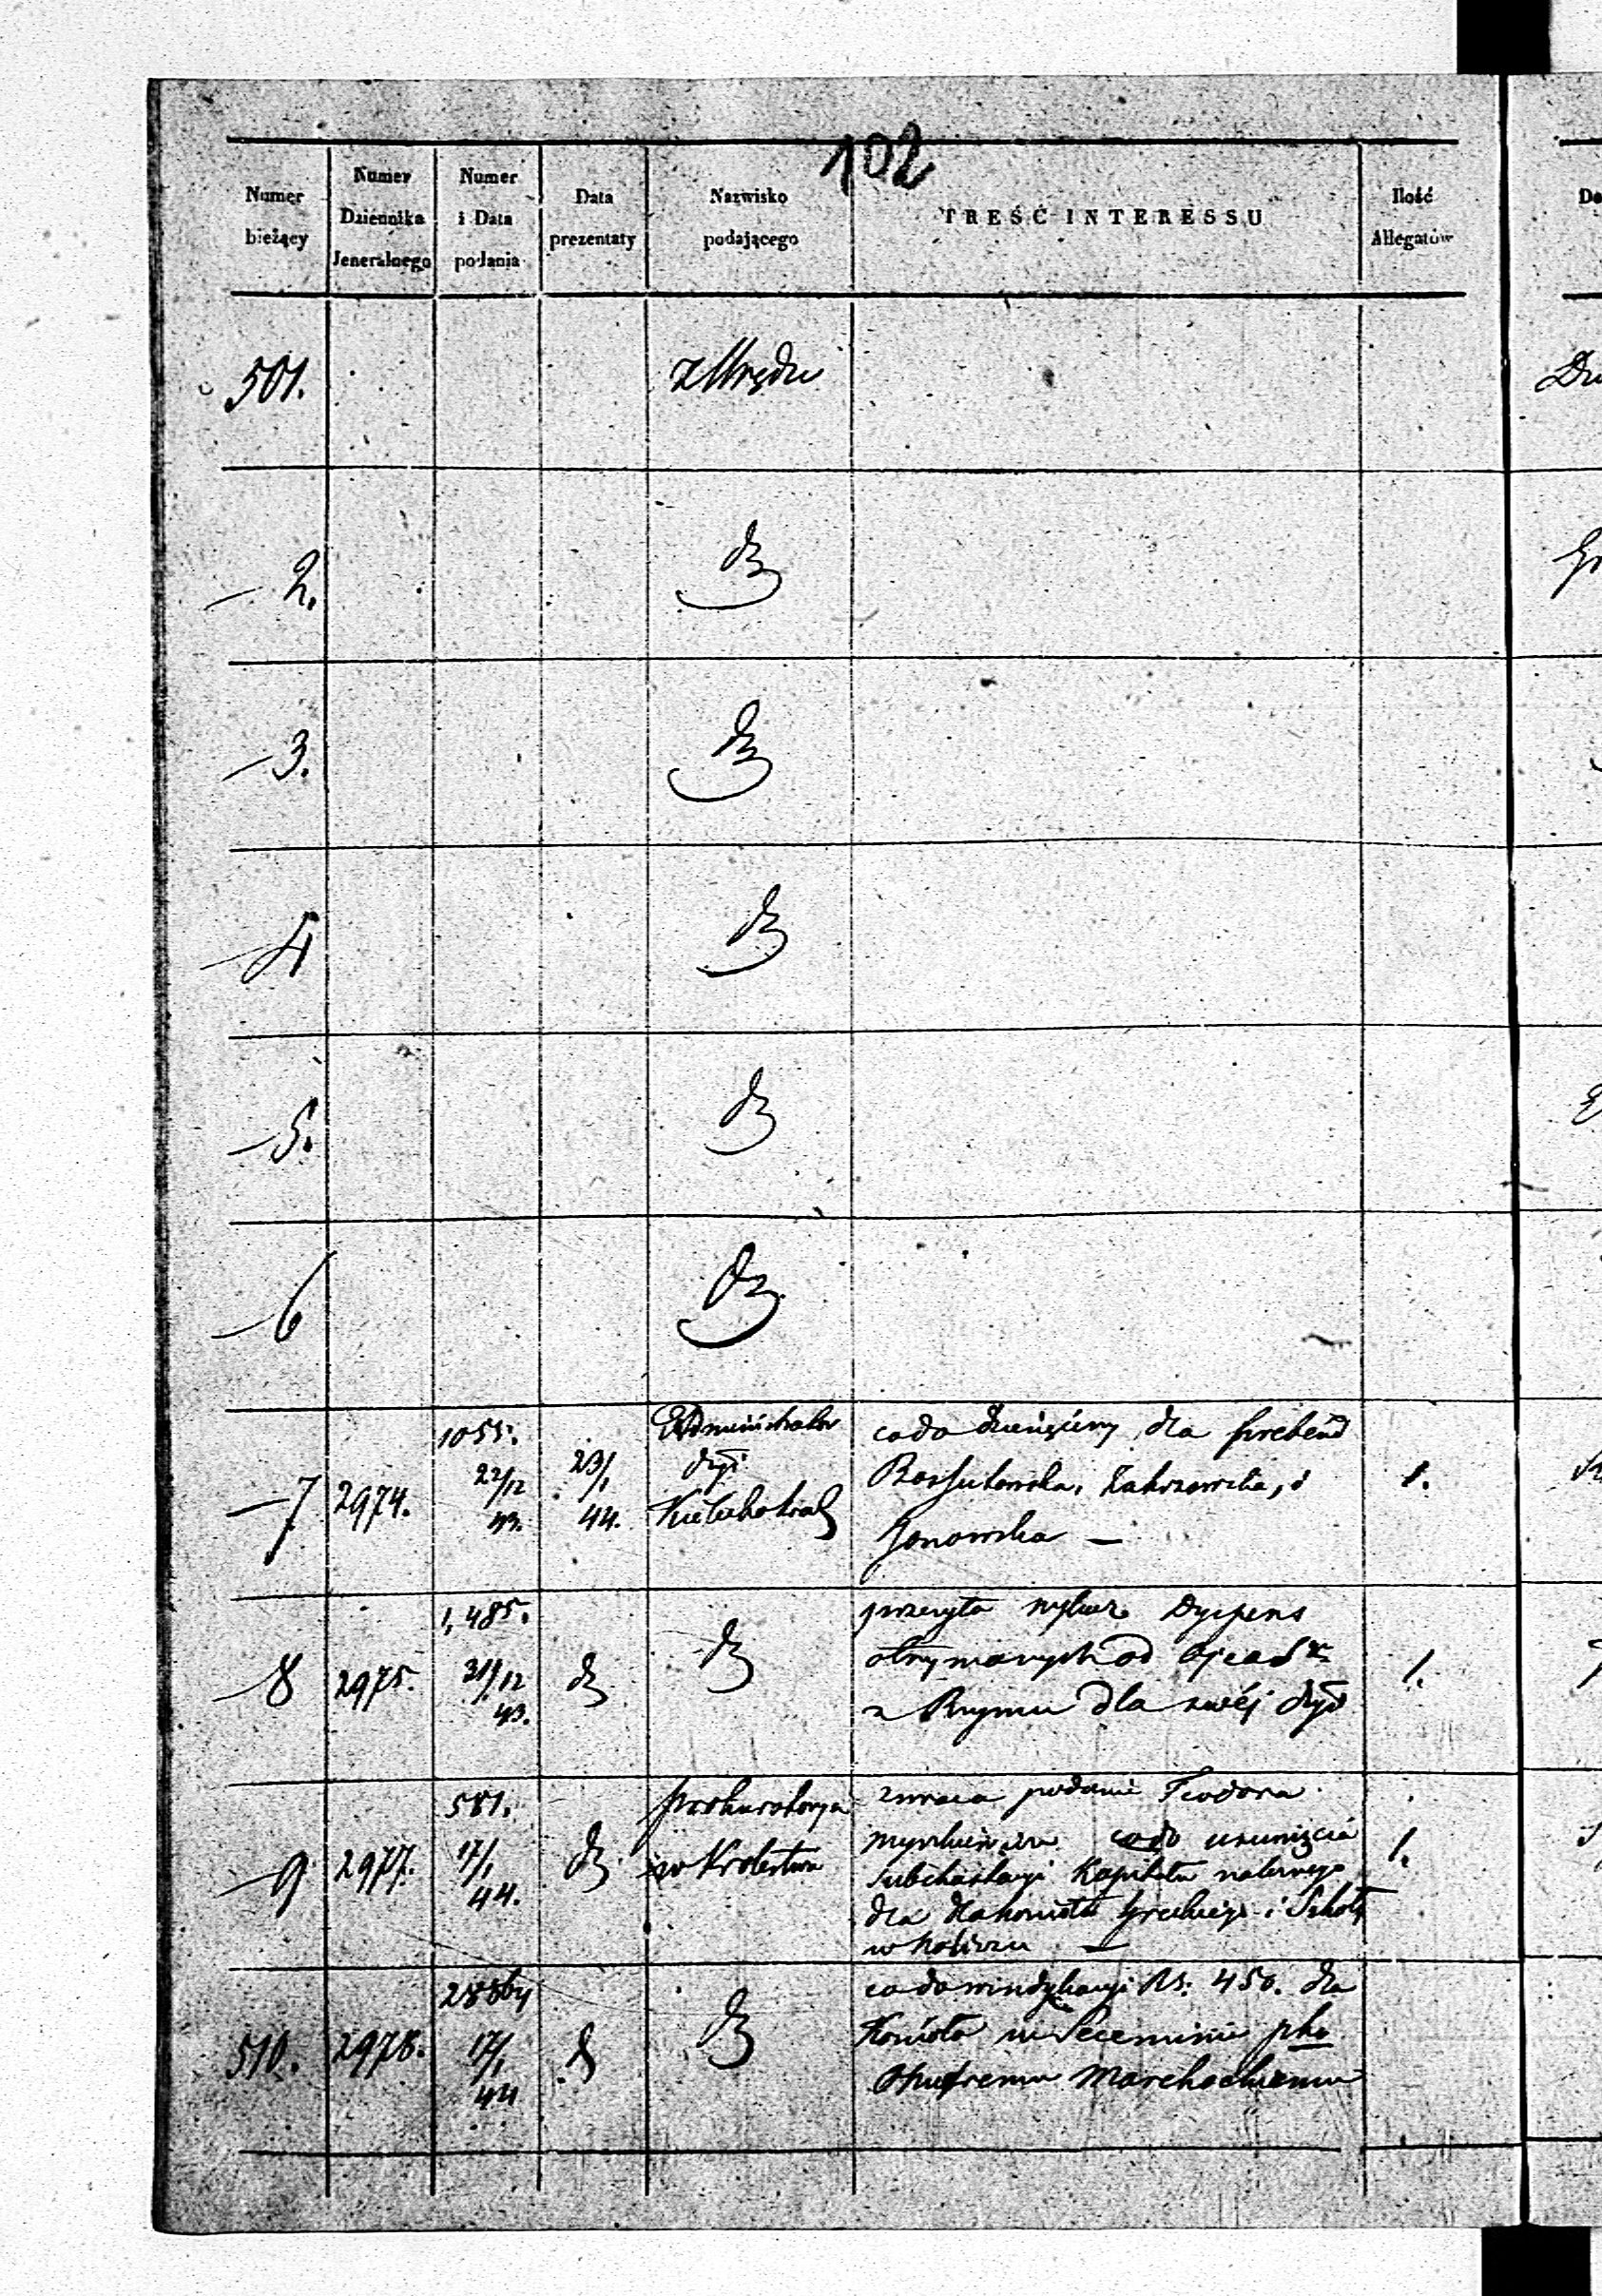 102
Numer bieżący
Numer Dziennika Jeneralnego
Numer i Data podania
Data prezentaty
Nazwisko podającego
TREŚĆ INTERESSU
Ilość Allegatów
501. z Urzędu
— 2. dto
— 3. dto
— 4 dto
— 5. dto
— 6 dto
— 7 2974. 1055. 22/12 43. 23/1 44. Administrator dyi
co do dziesięciny dla prebend
i
Janowska —
1.
— 8 2975. 1,485. 31/12 43. dto dto
przesyła wykaz Dyspens
otrzymanych od Ojca S
z Rzymu dla swéj dyi
1.
— 9 2977. 581. 17/1 44. dto Prokuratorya w Królestwie
zwraca podanie Teodora
co do usunięcia
subhastacyi Kapitału należnego
dla kościoła Greckiego i Szkoły
w Kaliszu —
1.
510. 2978. 17/1 44 dto dto
co do windykacyi Rs. 450. dla
Kościoła w Seceminie pko
Onufremu